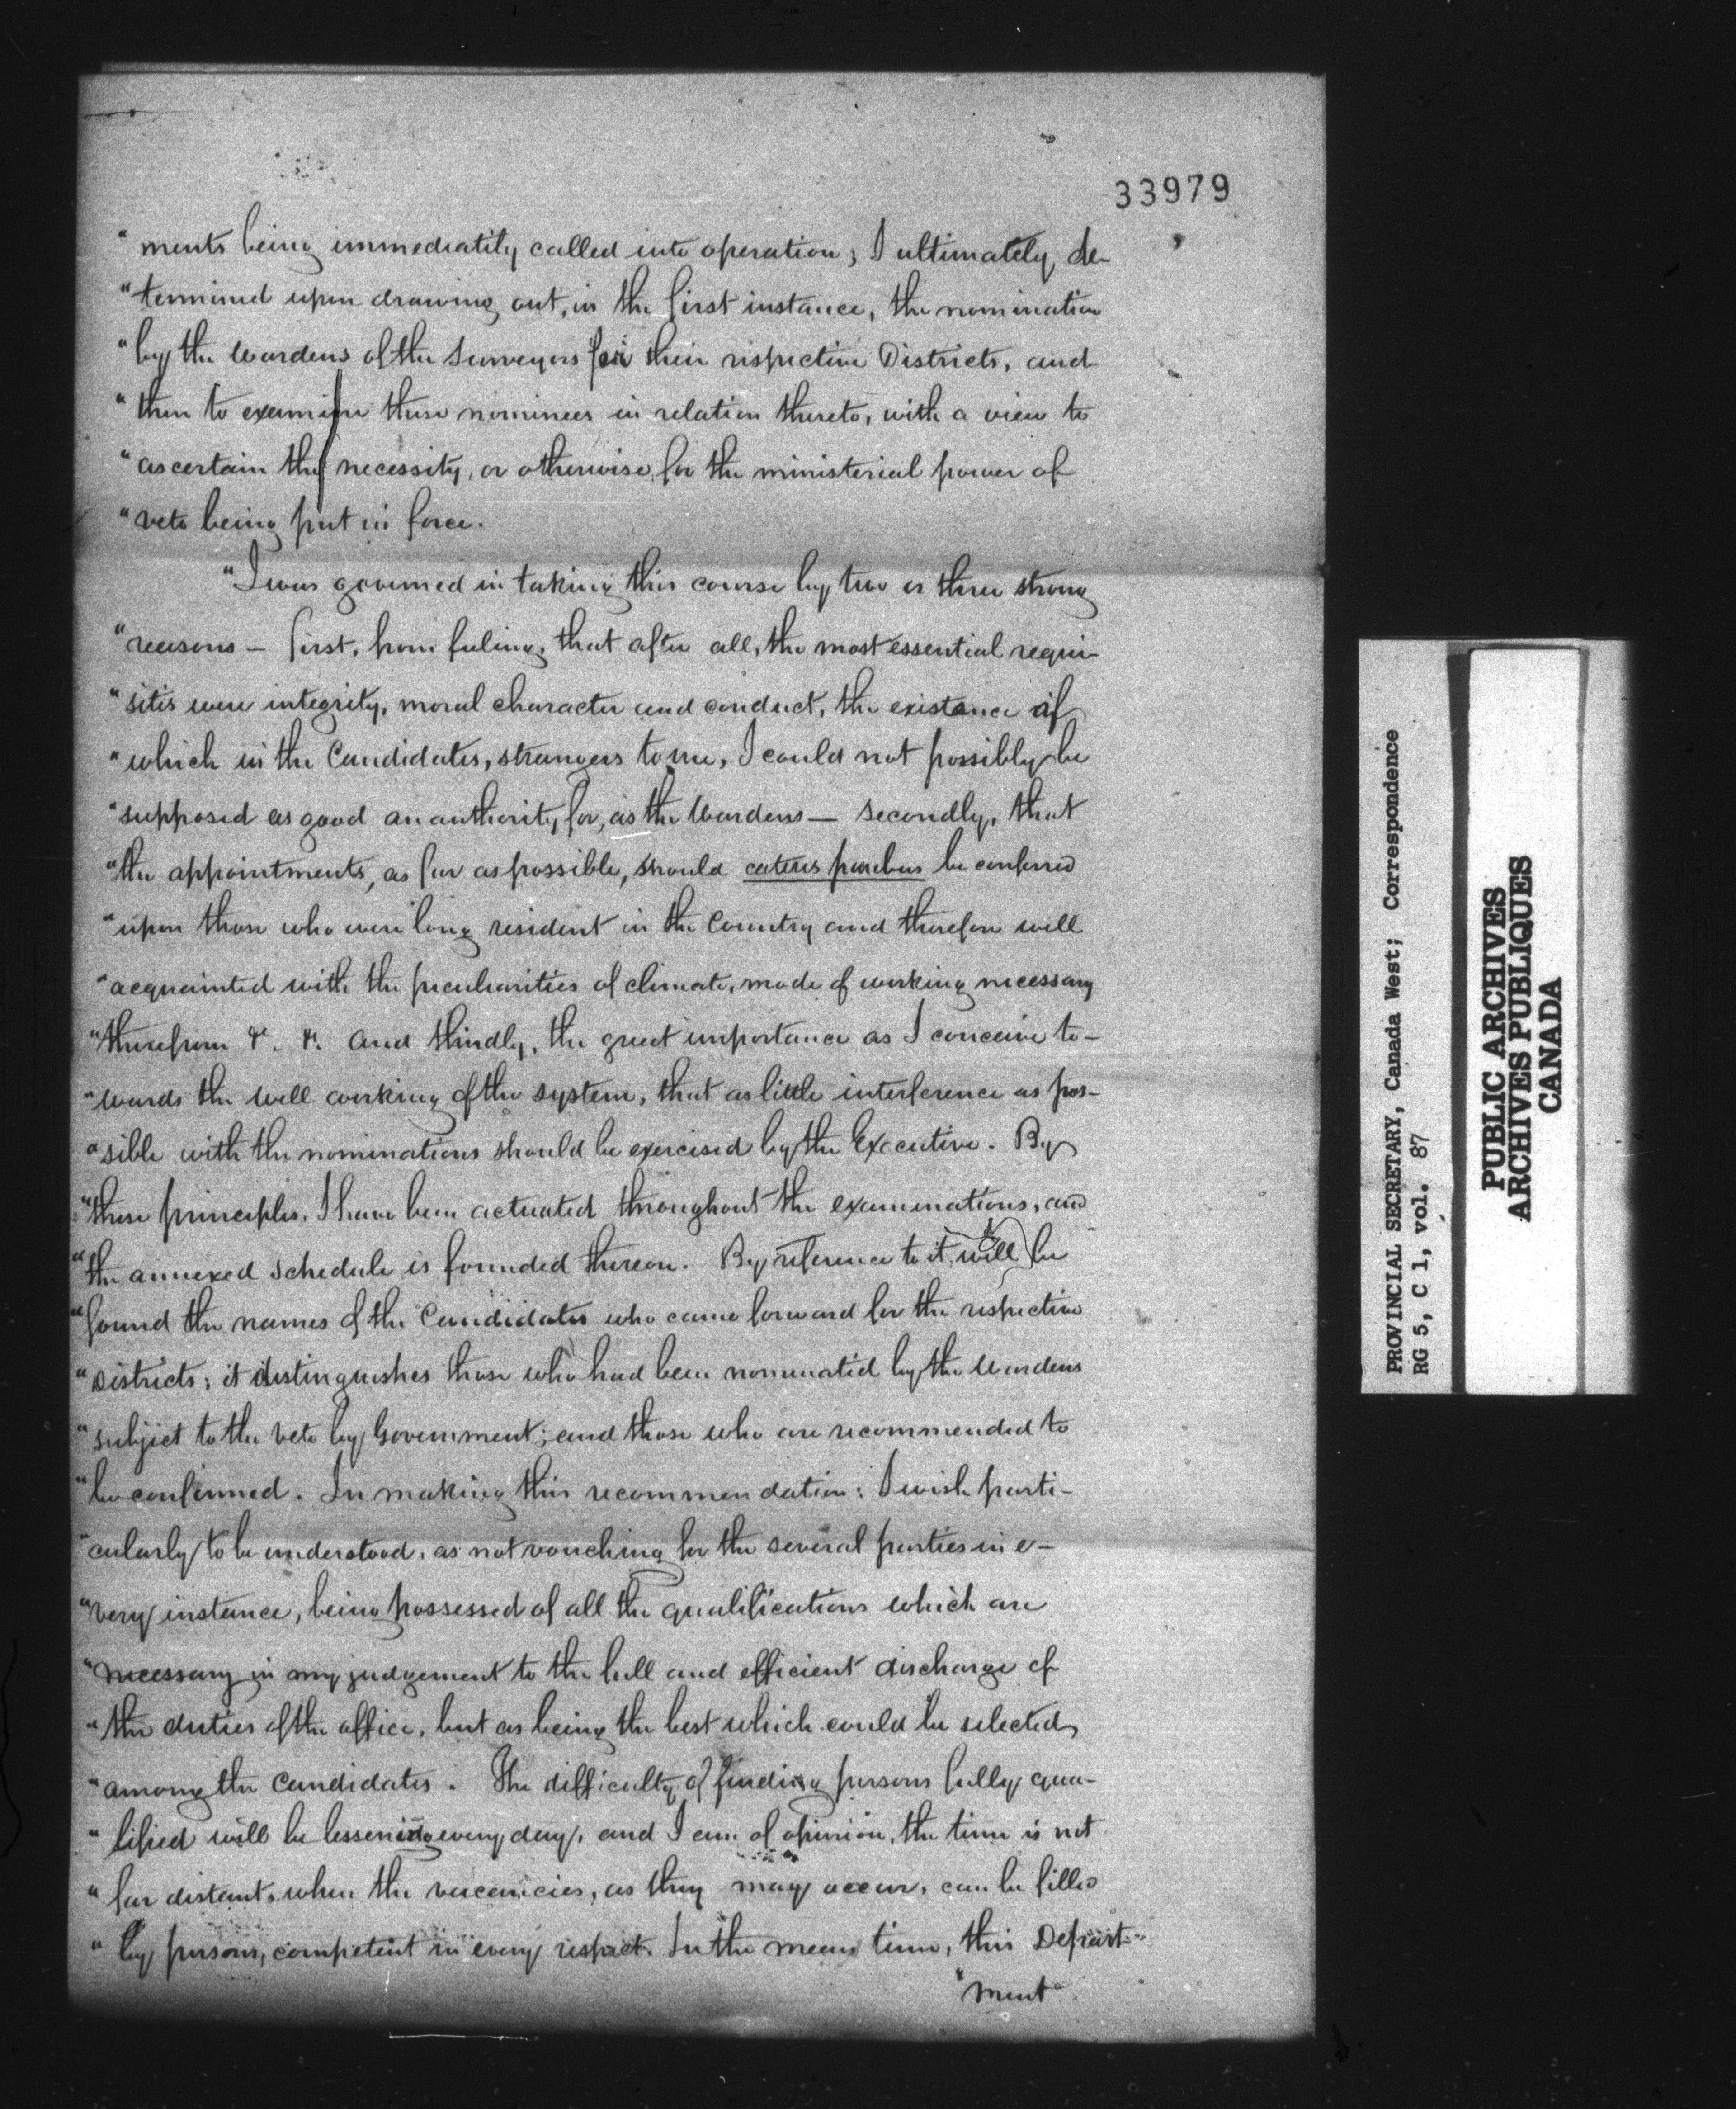 33979
"ments being immediately called into operation; I ultimately de-
"termined upon drawing out, in the first instance, the nomination
"by the Wardens of the Surveyors for their respective Districts, and
"then to examine these nominees in relation thereto, with a view to
"ascertain the necessity, or otherwise, for the ministerial power of
"veto being put in force.
"I was governed in taking this course by two or three strong
"reasons — first, from feeling, that after all, the most essential requi-
"sites were integrity, moral character and conduct, the existance of
"which in the Candidates, strangers to me, I could not possibly be
"supposed as good an authority for, as the Wardens — Secondly, that
"the appointments, as far as possible, should cæteris paribus be conferred
"upon those who were long resident in the Country and therefore well
"acquainted with the peculiarities of climate, mode of working necessary
"therefrom &c. &c. And thirdly, the great importance as I conceive to-
"wards the well working of the system, that as little interference as pos-
"sible with the nominations should be exercised by the Executive. By
"these principles, I have been actuated throughout the examinations, and
"the annexed Schedule is founded thereon. By reference to it will be
"found the names of the Candidates who came forward for the respective
"Districts; it distinguishes those who had been nominated by the Wardens
"subject to the veto by Government; and those who are recommended to
"be confirmed. In making this recommendation: I wish parti-
"cularly to be understood, as not vouching for the several parties in e-
"very instance, being possessed of all the qualifications which are
"necessary in my judgement to the full and efficient discharge of
"the duties of the office, but as being the best which could be selected
"among the Candidates. The difficulty of finding persons fully qua-
"lified will be lessening every day, and I am of opinion, the time is not
"far distant, when the vacancies, as they may occur, can be filled
"by persons, competent in every respect. In the mean time, this Depart-
"ment
PROVINCIAL SECRETARY, Canada West; Correspondence
RG 5, C 1, vol. 87
PUBLIC ARCHIVES
ARCHIVES PUBLIQUES
CANADA